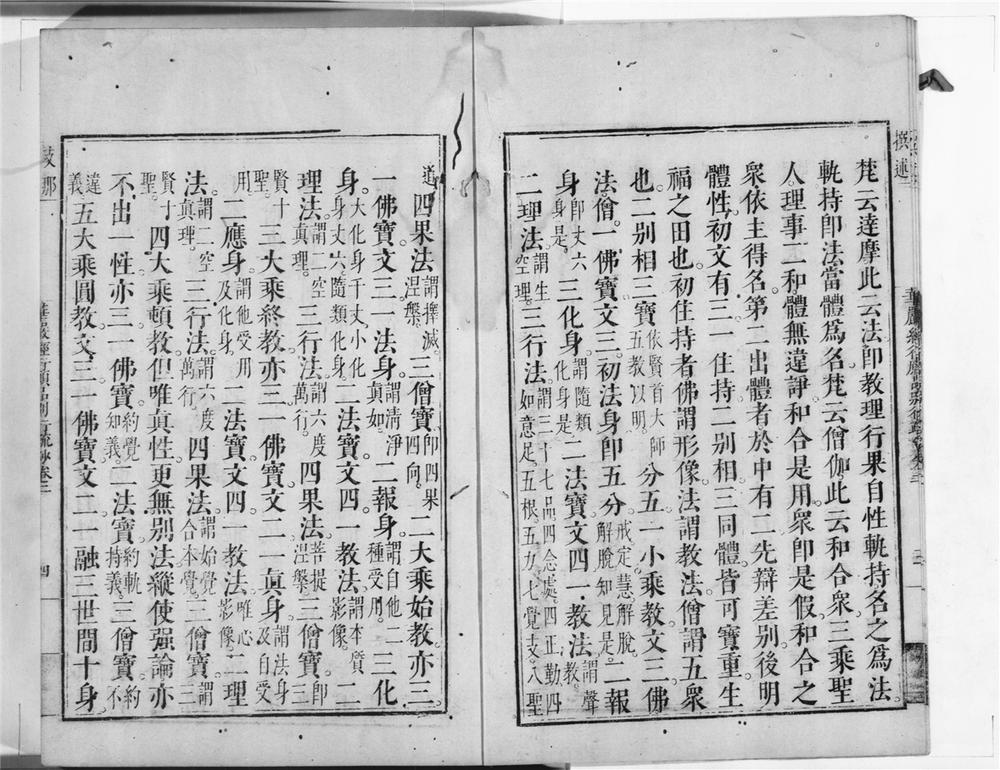 梵云達摩此云法即教理行果自性軌持名之爲法
軌持即法當體爲名梵云僧伽此云和合衆三乘聖
人理事二和體無違諍和合是用衆即是假和合之
衆依主得名第二出體者於中有二先辯差別後明
體性初文有三一住持二別相三同體皆可寶重生
福之田也初住持者佛謂形像法謂教法僧謂五衆
也二別相三寶依賢首大師五教以明分五一小乘教文三佛
法僧一佛寶文三初法即五分戒定慧解脫解脫知見是二報
身即丈六身是三化身謂隨類化身是二法寶文四一教法謂聲教
二理法謂生空理三行法謂三十七品四念處四正勤四如意足五根五力七覺支八聖
道四果法謂擇滅涅槃三僧寶即四果四向二大乘始教亦三
一佛寶文三一法身謂清淨眞如二報身謂自他二種受用三化
身大化身千丈小化身丈六隨類化身二法寶文四一教法謂本質影像二
理法謂二空眞理三行法謂六度萬行四果法菩提涅槃三僧寶即三
賢十聖三大乘終教亦三一佛寶文二一眞身謂法身及自受
用二應身謂他受用及化身二法寶文四一教法唯心影像二理
法謂二空眞理三行法謂六度萬行四果法謂始覺合本覺三僧寶謂三
賢十聖四大乘頓教但唯眞性更無別法縱使强論亦
不出一性亦三一佛寶約覺知義二法寶約軌持義三僧寶約不
違義五大乘圓教文三一佛寶文二一融三世間十身
支那
華嚴經行願品別行疏鈔卷
四